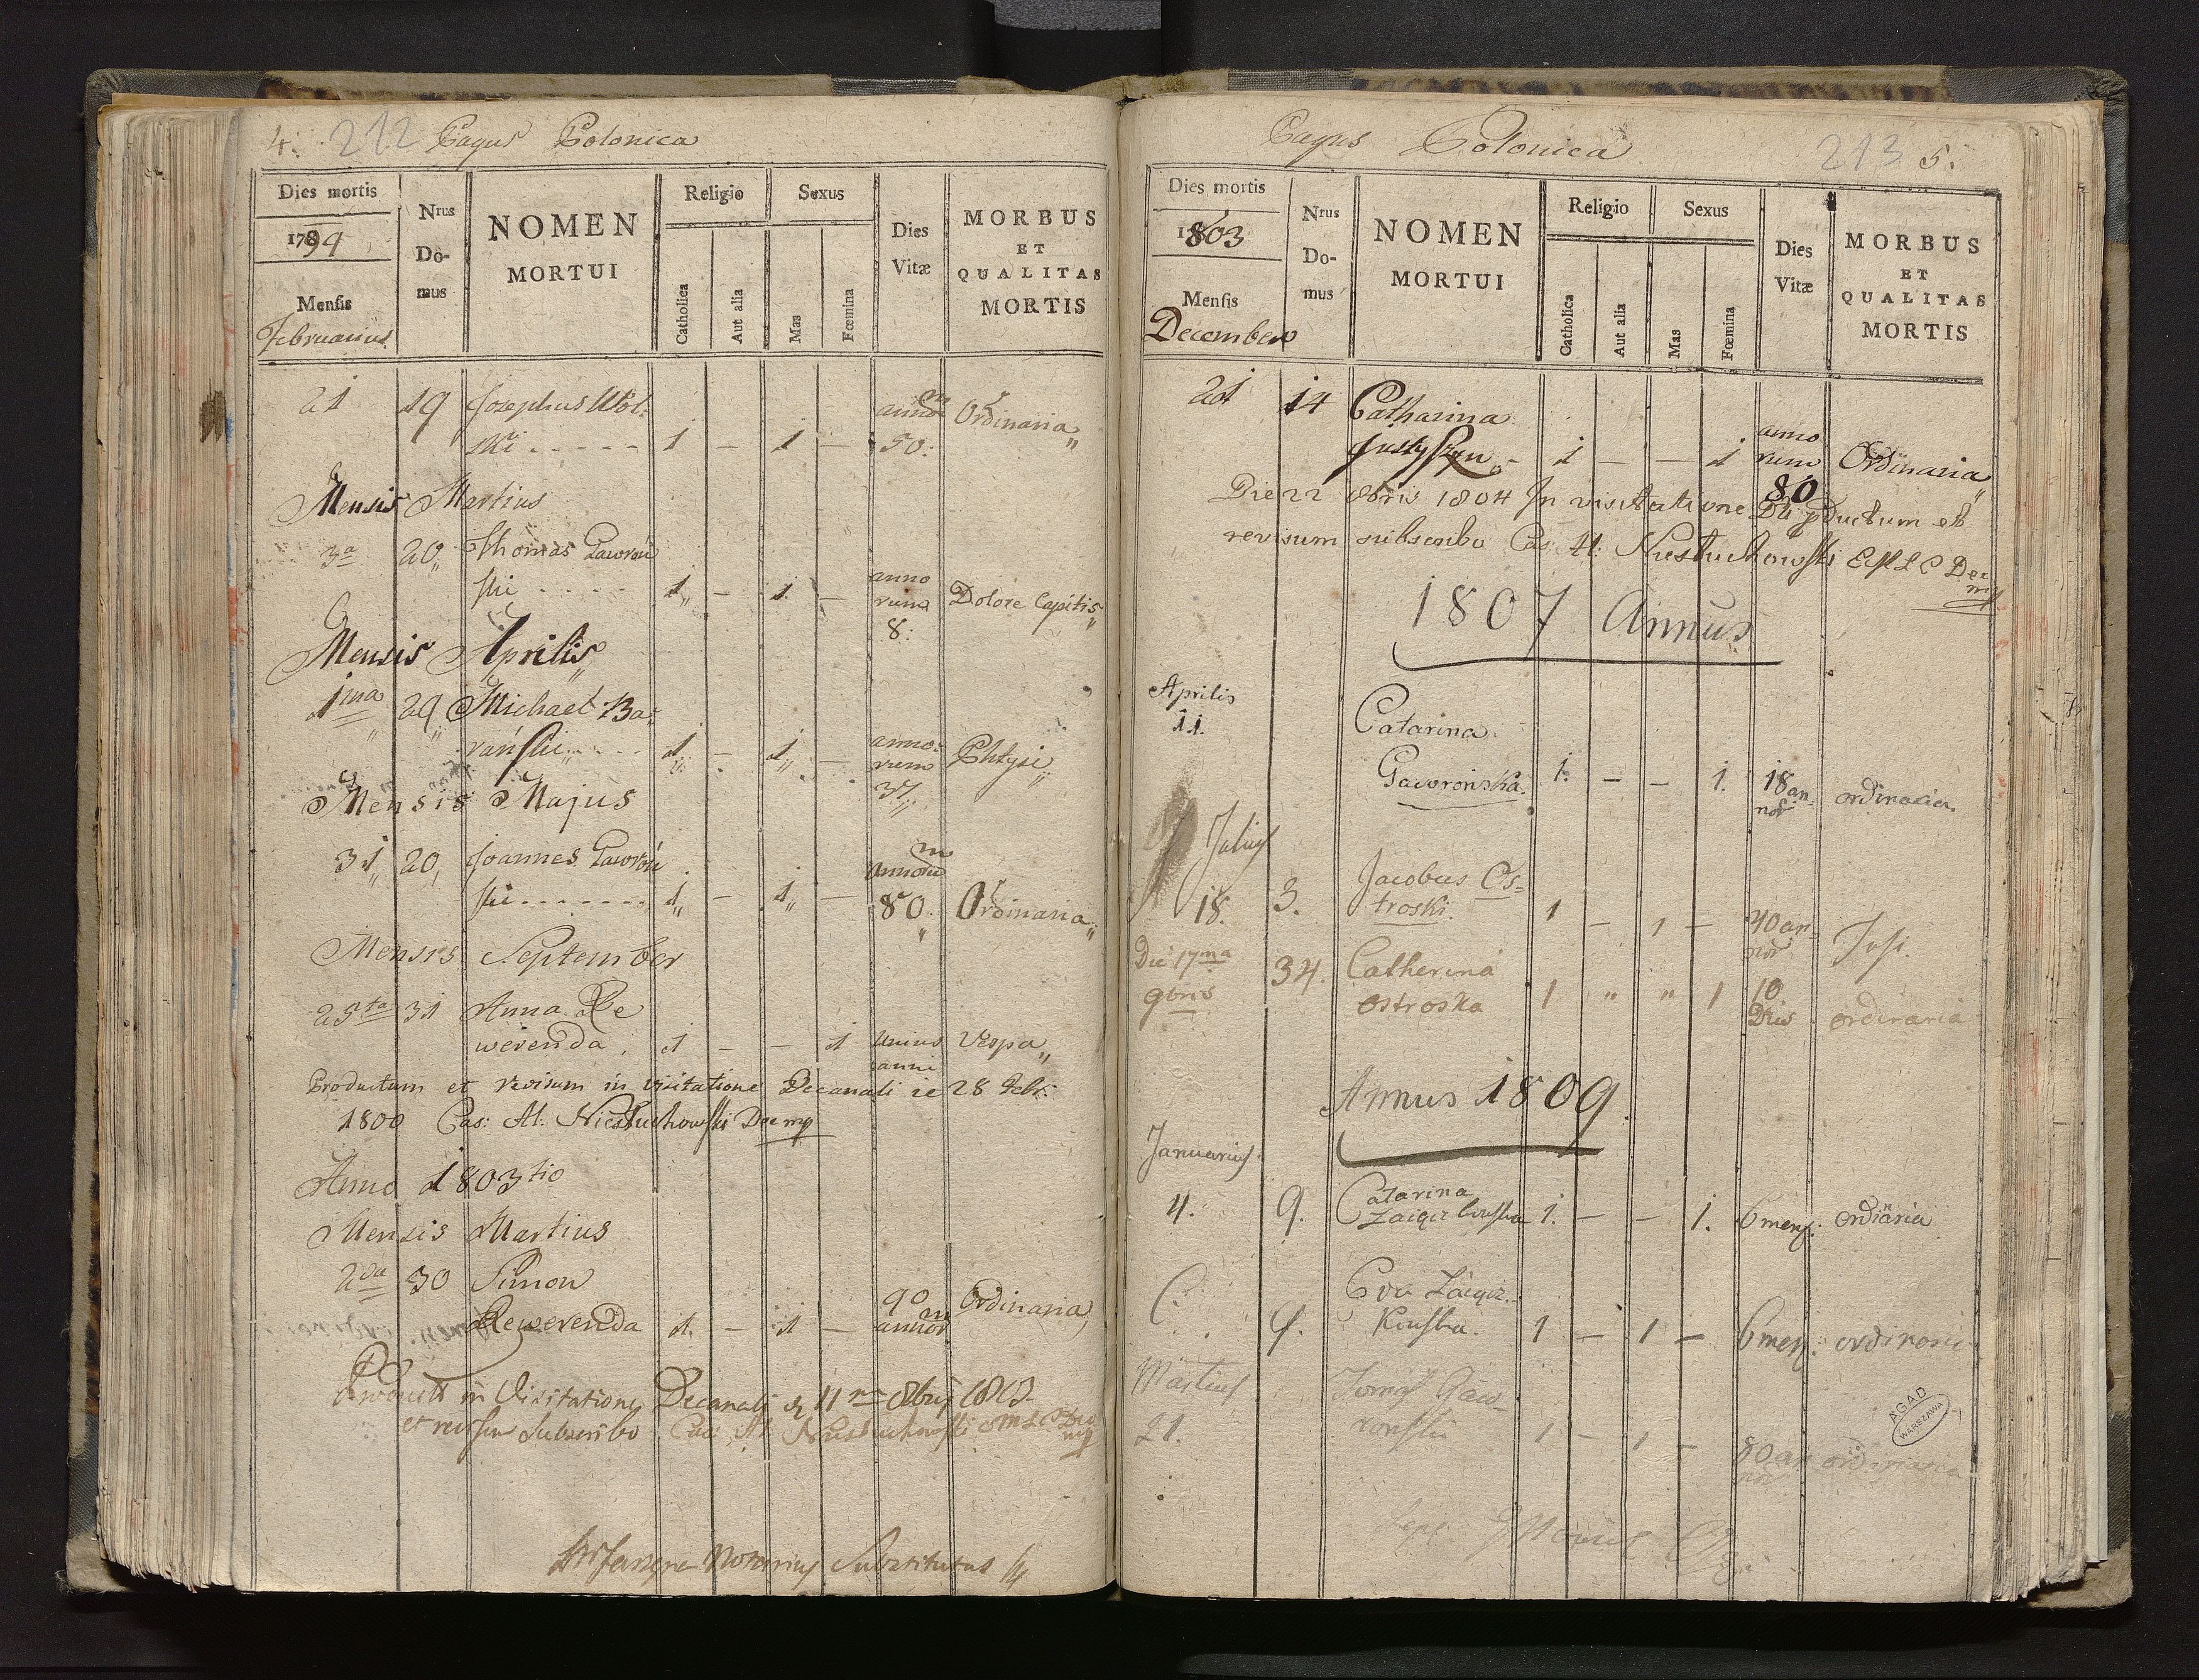 4. 212 Pagus Polonica
Dies mortis
1794
Mensis
Februarius
Nrus
Do-
mus
NOMEN
MORTUI
Religio
Catholica
Aut alia
Sexus
Mas
Fœmina
Dies
Vitæ
MORBUS
ET
QUALITAS
MORTIS
21 19 Josephus Wol:
ski - - - - - 1 — 1 — annor 50: Ordinaria
Mensis Martius
3a 20 Thomas Gawroń
ski - - - - 1 — 1 — anno
rum
8: Dolore Capitis
Mensis Aprilis
1ma 29 Michael Ba:
rański - - - 1 — 1 — anno:
rum
37 Phtysi
Mensis Majus
31 20 Joannes Gawroń
ski - - - - - - 1 — 1 — annoru
80 Ordinaria
Mensis September
25ta 31 Anna Re
werenda 1 — — 1 unius
anni Vespa
Productum et revisum in visitatione Decanali 28
1800 Cas: Al: Niestuchowski Dec mp
Anno 1803tio
Mensis Martius
2da 30 Simon
Rewerenda 1 — 1 — 90
annor Ordinaria
in Visitatione Decanali 11
et Subscribo Cas: Al: Niestuchowski
Notarius Substitutus
Pagus Polonica 213 5.
Dies mortis
1803
Mensis
December
Nrus
Do-
mus
NOMEN
MORTUI
Religio
Catholica
Aut alia
Sexus
Mas
Fœmina
Dies
Vitæ
MORBUS
ET
QUALITAS
MORTIS
21 14 Catharina
1 — — 1 anno
rum
80 Ordinaria
Die 22 8bris 1804 In visitatione productum et
revisum subscribo Cas: Al: Niestuchowski
1807 Annus
Aprilis
11. Catarina
Gawrońska. 1. — — 1. 18 an-
nor ordinaria.
Julius
18. 3. Jacobus Os-
troski. 1 — 1 — 40 an-
nor
Die 17ma
9bris 34. Catherina
Ostroska 1 " " 1 10
Dies ordinaria
Annus 1809.
Januarius
4. 9. Catarina
1. — — 1. 6 mens: ordinaria
9. Eva
1 — 1 — 6 mens: ordinaria
Martius
21. Gaw-
roński 1 — 1 — 80 an
nor ordinaria
AGAD
WARSZAWA